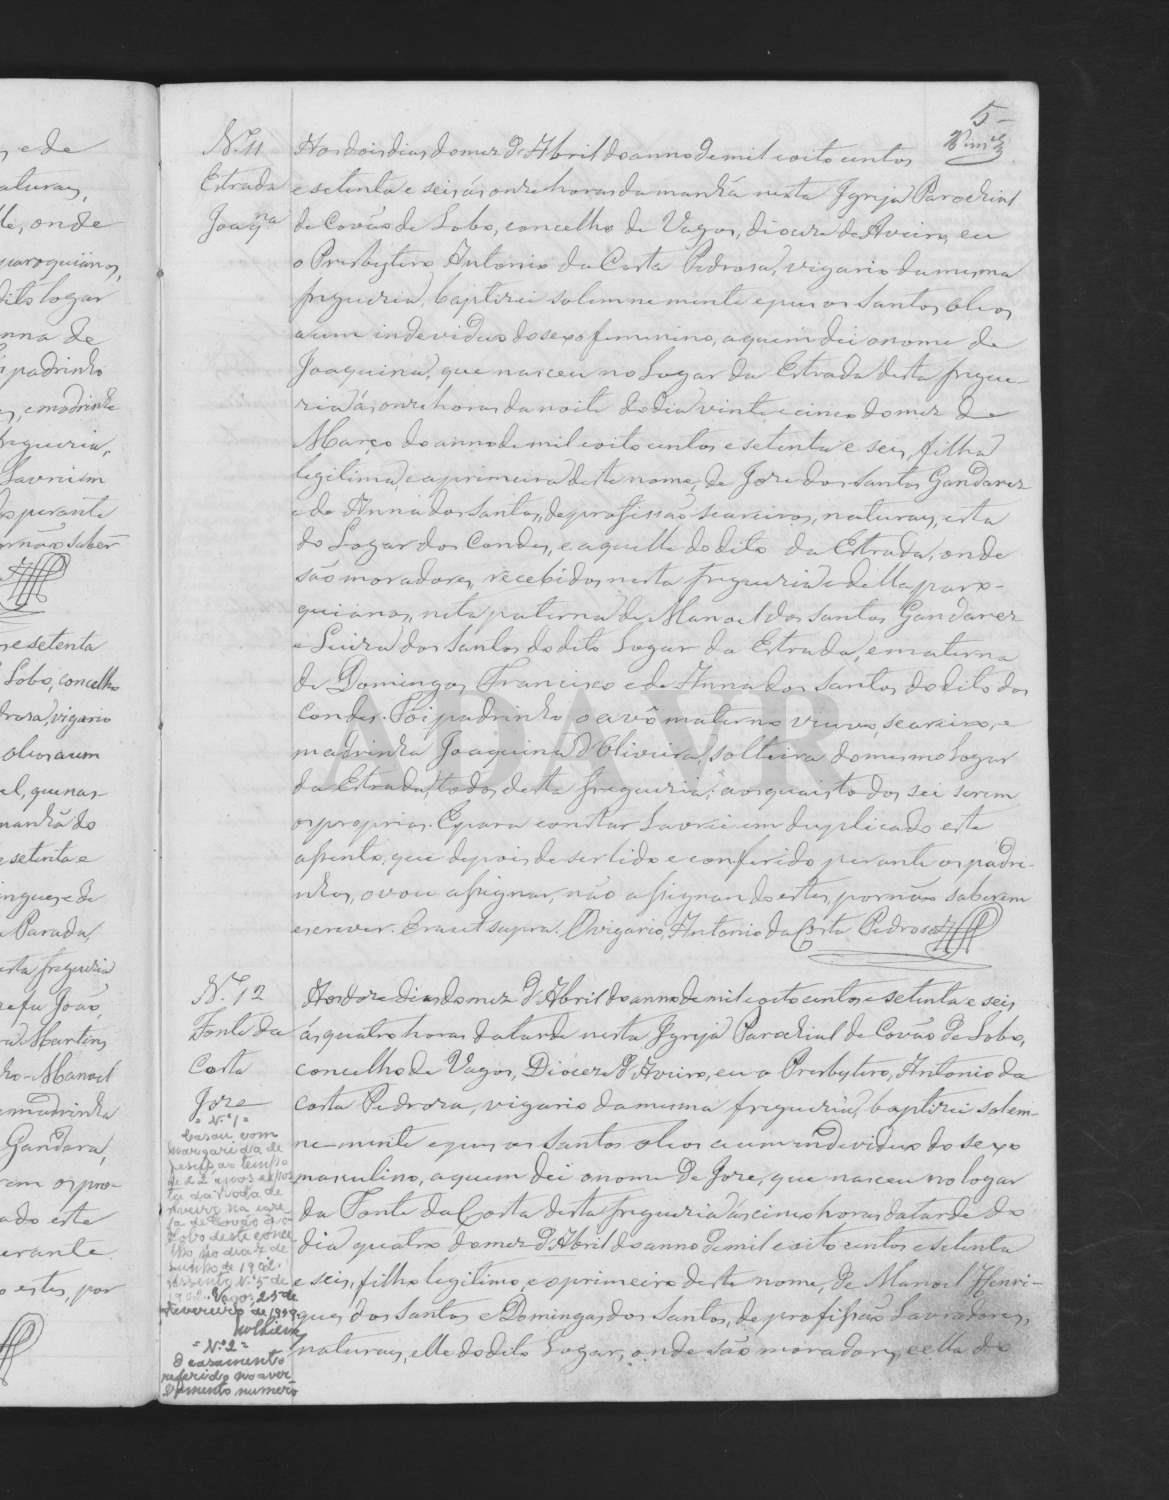 5
N. 11
Estrada
Joaq.na
Aos dois dias do mez d'Abril do anno de mil e oito centos
e setenta e seis ás onze horas da manhã nesta Igreja Parochial
de Covão de Lobo, concelho de Vagos, diocese de Aveiro, eu
o Presbytero Antonio da Costa Pedrosa, vigario da mesma
freguezia, baptizei solemnemente e puz os Santos oleos
a um individuo do sexo femenino, a quem dei o nome de
Joaquina, que nasceu no Lugar da Estrada desta fregue-
zia ás onze horas da noite do dia vinte e cinco do mez de
Março do anno de mil e oito centos e setenta e seis, filha
legitima, e a primeira deste nome, de Joze dos Santos Gandarez
e de Anna dos Santos, de profissão seareiros, naturaes, esta
do Logar dos Condes, e aquelle do dito da Estrada, onde
são moradores, recebidos nesta freguezia e della paro-
quianos, neta paterna de Manoel dos Santos Gandarez
e Luiza dos Santos do dito Lugar da Estrada, e materna
de Domingos Francisco e de Anna dos Santos do dito dos
Condes. Foi padrinho o avô materno viuvo, seareiro, e
madrinha Joaquina d'Oliveira, solteira do mesmo Logar
da Estrada, todos desta freguezia, aos quais todos sei serem
os proprios. E para constar lavrei em duplicado este
assento, que depois de ser lido e conferido perante os padri-
nhos, o vou assignar, não assignando estes, por não saberem
escrever. Era ut supra. O vigario, Antonio da Costa Pedrosa
N. 12
Fonte da
Costa
Joze
Aos doze dias do mez d'Abril do anno de mil e oito centos e setenta e seis,
ás quatro horas da tarde nesta Igreja Parochial de Covão de Lobo,
concelho de Vagos, Diocese d'Aveiro, eu o Presbytero, Antonio da
Costa Pedroza, vigario da mesma freguezia, baptizei solem-
ne-mente e puz os Santos oleos a um individuo do sexo
masculino, a quem dei o nome de Joze, que nasceu no logar
da Fonte da Costa desta freguezia ás cinco horas da tarde do
dia quatro do mez d'Abril do anno de mil e oito centos e setenta
e seis, filho legitimo, e o primeiro deste nome, de Manoel Henri-
ques dos Santos e Domingas dos Santos, de profissão Lavradores,
naturaes, elle do dito Lugar, onde são moradores, e ella do
= N.º 1 =
Casou com
Margarida de
Jesus, ao tempo
de 22 anos expos-
ta da roda de
Aveiro na igre-
ja de Covão do
Lobo deste conce-
lho no dia 2 de
Junho de 1902.
Assento N.º 5 de
1902. Vagos, 25 de
Fevereiro de
= N.º 2 =
O casamento
referido no aver-
bamento numero
e de
onde
paroquianos,
dito logar
anna de
padrinho
e madrinha
freguezia,
Lavrei em
perante
não saber
e setenta
Lobo, concelho
vigario
oleos a um
que nas-
manhã do
e setenta e
e de
Parada,
esta freguezia
João,
Martins,
Manoel
madrinha
Gandara,
os pro-
este
perante
estes, por
ADAVR